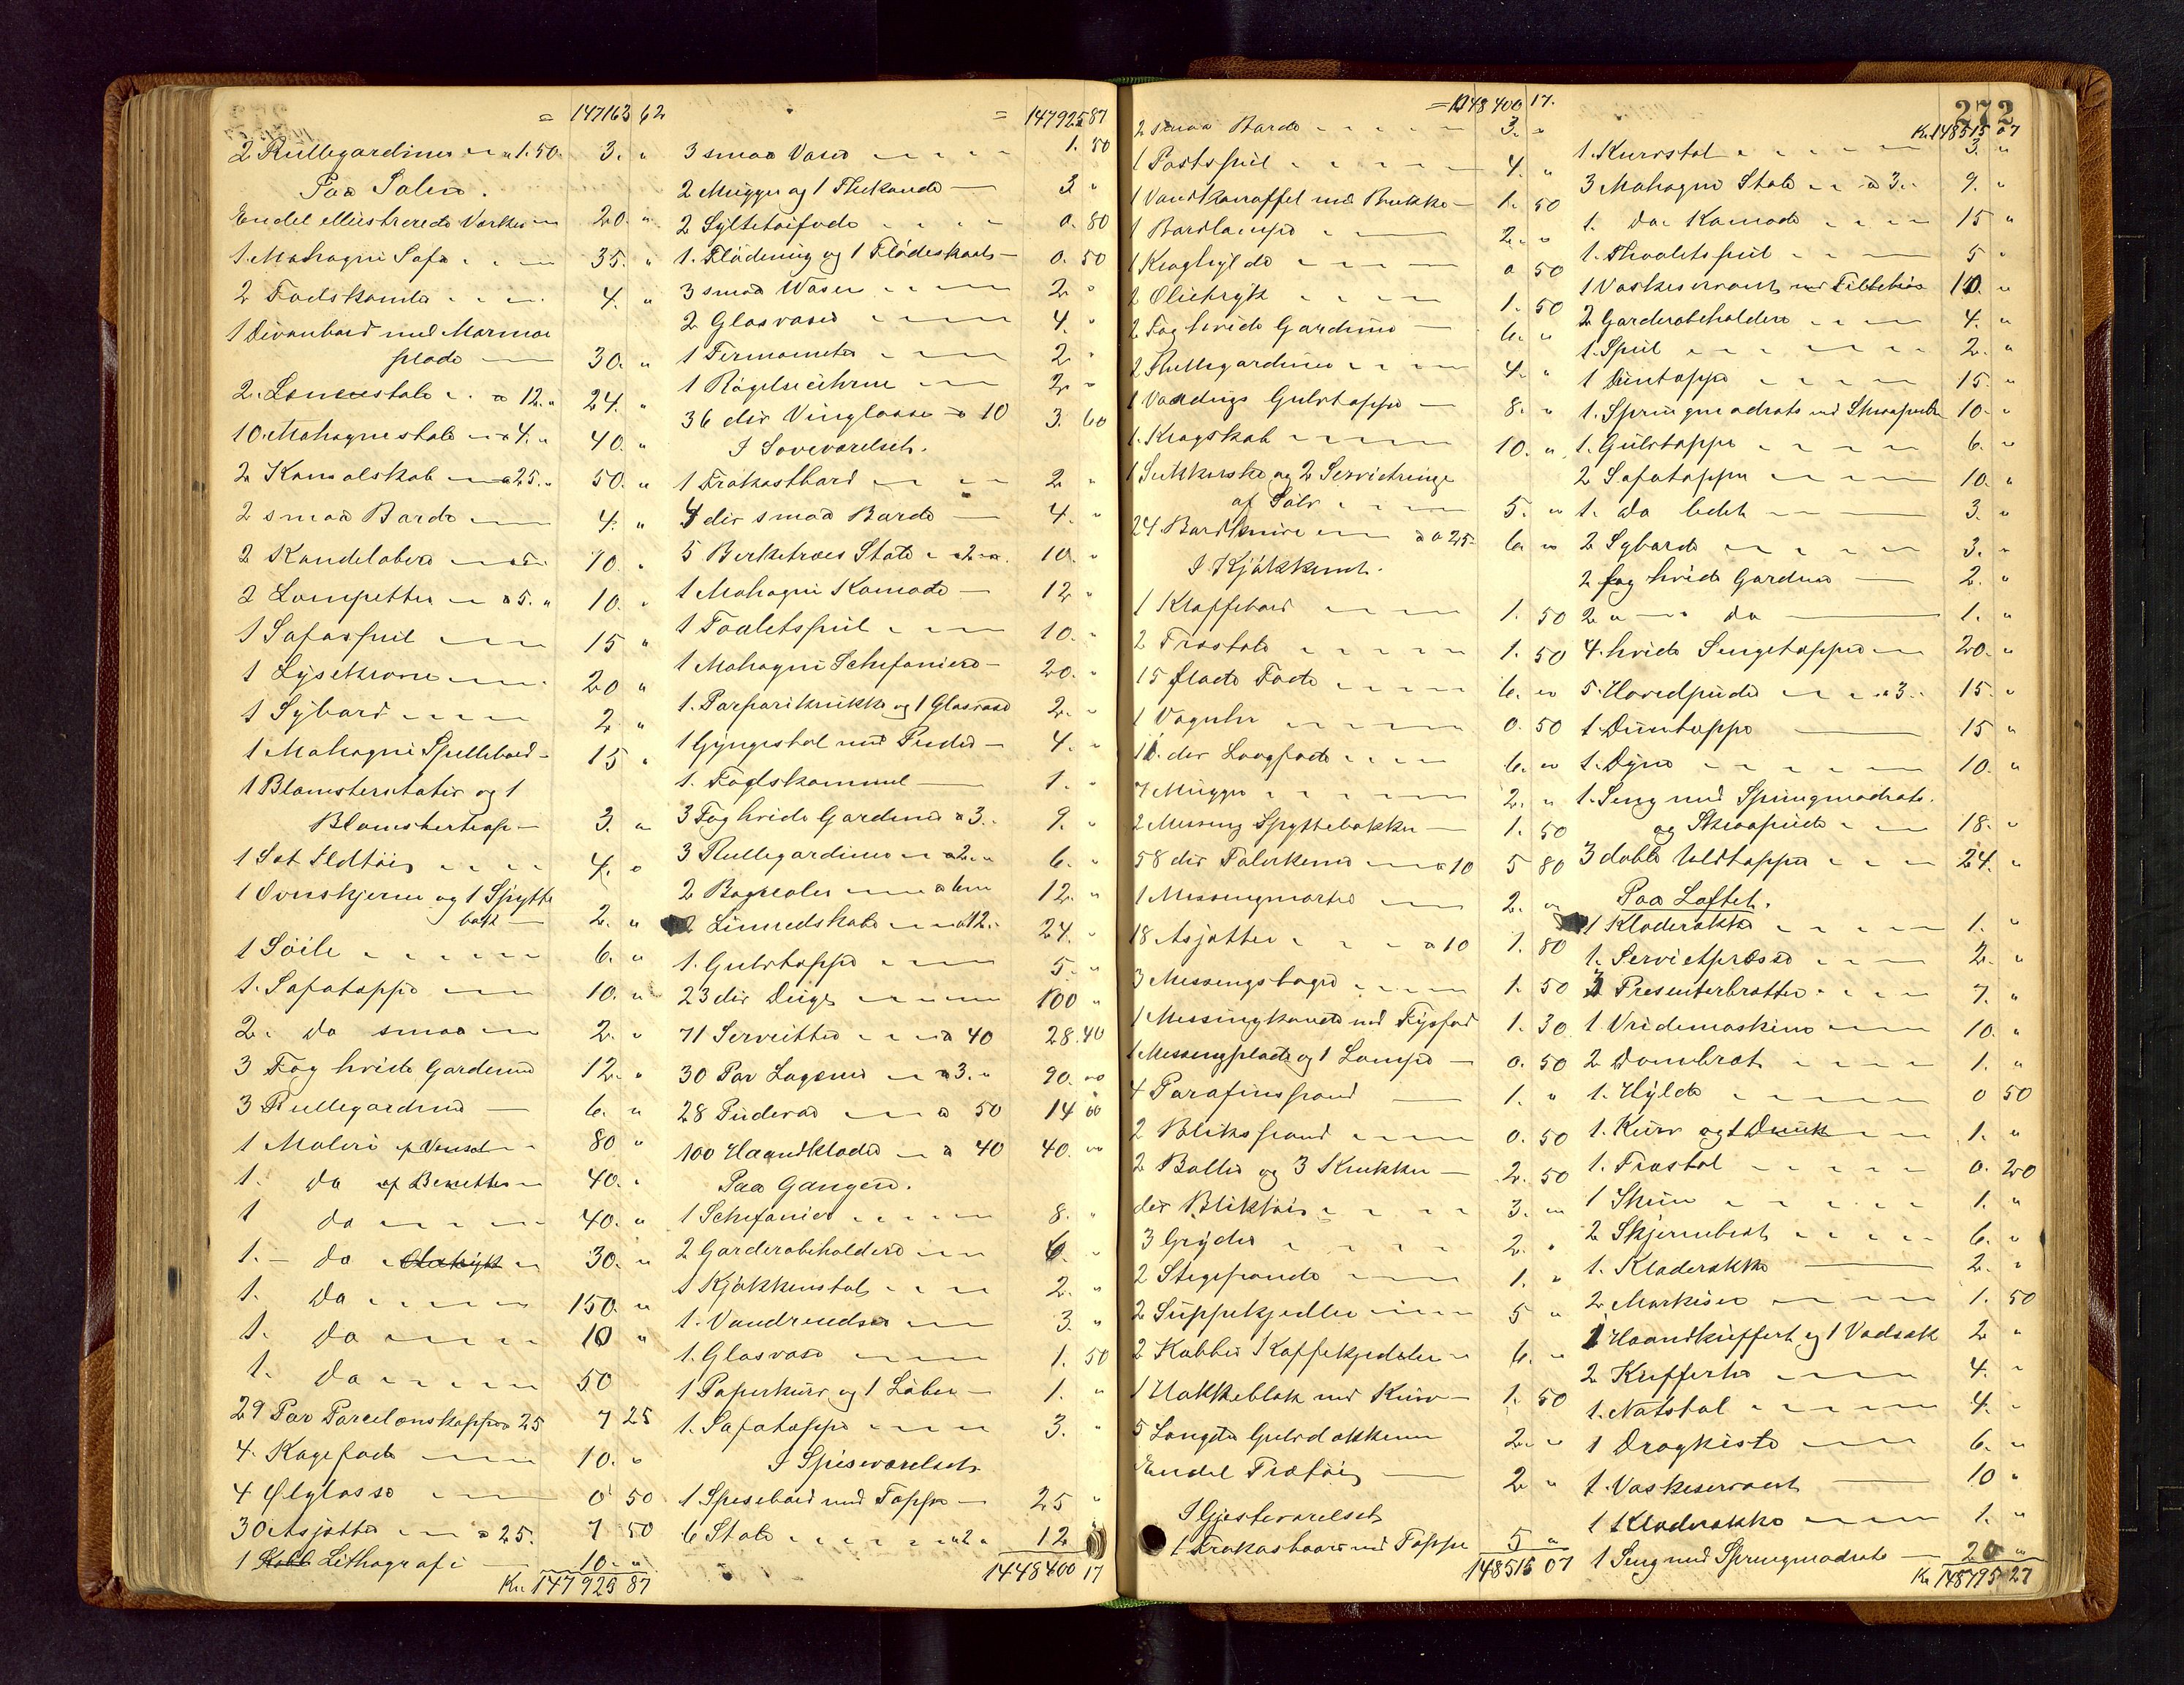 = 147163 62
2 Rullegardiner a 1.50. 3. "
Paa Salen.
Endel illustrerede Værker 20. "
1. Mahogni Sofa 35. "
2 Fodskamler 4. "
1 Divanbord med Marmor
plade 30. "
2. Lænestole a 12. " 24. "
10. Mahognistole a 4. " 40. "
2 Konsolskab a 25. " 50. "
2 smaa Borde 4. "
2 Kandelabere a 5. 10. "
2 Lampetter a 5. " 10. "
1 Sofaspeil 15 "
1 Lysekrone 20 "
1 Sybord 2. "
1 Mahogni Spillebord 15 "
1 Blomsterstativ og 1
Blomstertrap 3. "
1 Sæt Ildtøi 4. "
1 Ovnskjerm og 1 Spytte
bak 2. "
1 Søile 6. "
1. Sofatæppe 10. "
2. do smaa 2. "
3 Fag hvide Gardiner 12. "
3 Rullegardiner 6. "
1 Maleri af 80 "
1. do af Bennetter 40. "
1 do 40. "
1. do Oletryk 30. "
1. do 150. "
1. do 10 "
1. do 50
29 Par Porcelænskopper a 25 7 25
4. Kagefade 10. "
4 Ølglasse 0 50
30 Asjetter a 25. 7 50
1 Lithografi 10. "
Kr. 147 925 87
= 147925 87
3 smaa Vaser 1. 50
2 Mugger og 1 Thekande 3 "
2 Syltetøifade 0. 80
1. Flødemug og 1 Flødeskaal 0. 50
3 smaa Vaser 2 "
2 Glasvaser 4. "
1 Termometer 2 "
1 Røgelseurne 2. "
36 div Vinglasse a 10 3. 60
I Soveværelset.
1 Frokostbord 2 "
4 div smaa Borde 4. "
5 Berketræes Stole a 2. 10. "
1 Mahogni Komode 12 "
1 Toaletspeil 10. "
1 Mahogni Schefoniere 20. "
1. krukke og 1 Glasvase 2. "
1 Gyngestol med Puder 4. "
1. Fodskammel 1. "
3 Fag hvide Gardiner a 3. 9. "
3 Rullegardiner a 2. " 6. "
2 Bogreoler a 12. "
2 Linnedskabe a 12. 24. "
1. Gulvtæppe 5. "
23 div Duge 100 "
71 Servietter a 40 28. 40
30 Par Lagener a 3. " 90. "
28 Pudevar a 50 14 00
100 Haandklæder a 40 40. "
Paa Gangen.
1 Schefonier 8. "
2 Garderobeholdere 6. "
1 Kjøkkenstol 2. "
1. Vandrendser 3. "
1. Glasvase 1. 50
1 Papirkurv og 1 Løber 1. "
1. Sofatæppe 3. "
I Spiseværelset
1 Spisebord med Tæppe 25 "
6 Stole a 2 12 "
1448400 17
= 148 400 17.
2 smaa Borde 3. "
1 Postspeil 4. "
1 Vandkaraffel med Brikke 1. 50
1 Bordlampe 2. "
1 Kraghylde 0 50
2 Olietryk 1. 50
2 Fag hvide Gardiner 6. "
2 Rullegardiner 4. "
1 Voxdugs Gulvtæppe 8. "
1. Kragskab 10. "
1 Sukkerske og 2 Servietringe
af Sølv 5. "
24 Bordknive a 0 25 6. "
I Kjøkkenet.
1 Klappebord 1. 50
2 Træstole 1. 50
15 flade Fade 6. "
1 Væguhr 0. 50
11. div Laagfade 6. "
7 Mugger 2. "
2 Messing Spyttebakker 1. 50
58 div Talerkener a 10 5 80
1 Messingmorter 2. "
18 Asjetter a 10 1. 80
3 Messingstager 1. 50
1 Messingkande med Fyrfad 1. 30
1 Messingplade og 1 Lampe 0. 50
4 Parafinspand 1. "
2 Blikspand 0. 50
2 Baller og 3 Krukker 2. 50
div Bliktøi 3. "
3 Gryder 2. "
2 Stegepande 1. "
2 Suppekjedler 5 "
2 Kobber Kaffekjedeler 6. "
1 Hakkeblok med Kniv 1. 50
5 Længder Gulvdækken 2. "
Endel Trætøi 2 "
I Gjesteværelset
1 Frokostbord med Tæppe 5 "
148515 07
272
Kr. 148515 07
1. Kurvstol 3. "
3 Mahogni Stole a 3. 9. "
1. do Komode 15 "
1. Thoaletspeil 5 "
1 Vaskeservant med Tilbehør 10. "
2 Garderobeholdere 4. "
1. Speil 2. "
1 Duntæppe 15. "
1. Springmadrats med Skraapude 10. "
1. Gulvtæppe 6. "
2 Sofatæpper 10. "
1. do lidet 3. "
2 Syborde 3. "
2 fag hvide Gardiner 2. "
2 " " do 1. "
4. hvide Sengetæpper 20. "
5. Hovedpuder a 3. 15. "
1 Duntæppe 15 "
1. Dyne 10. "
1. Seng med Springmadrats.
og Skraapude 18. "
3 doble Uldtæpper 24. "
Paa Loftet.
1 Klæderække 1. "
1. Servietpresse 2. "
3 Presenterbretter 7. "
1 Vridemaskine 10. "
2 Dambret 1. "
1. Hylde 0 50
1. Kurv og 1 Dunk 1. "
1. Træstol 0. 20
1 Skrin 1. "
2 Skjermbret 6. "
1. Klæderække 2. "
2 Markiser 1. 50
1 Haandkuffert og 1 Vadsæk 2 "
2 Kufferter 4. "
1. Natstol 4. "
1 Dragkiste 6. "
1. Vaskeservant 10 "
1 Klæderække 1. "
1 Seng med Springmadrats 20 "
Kr 148795 27